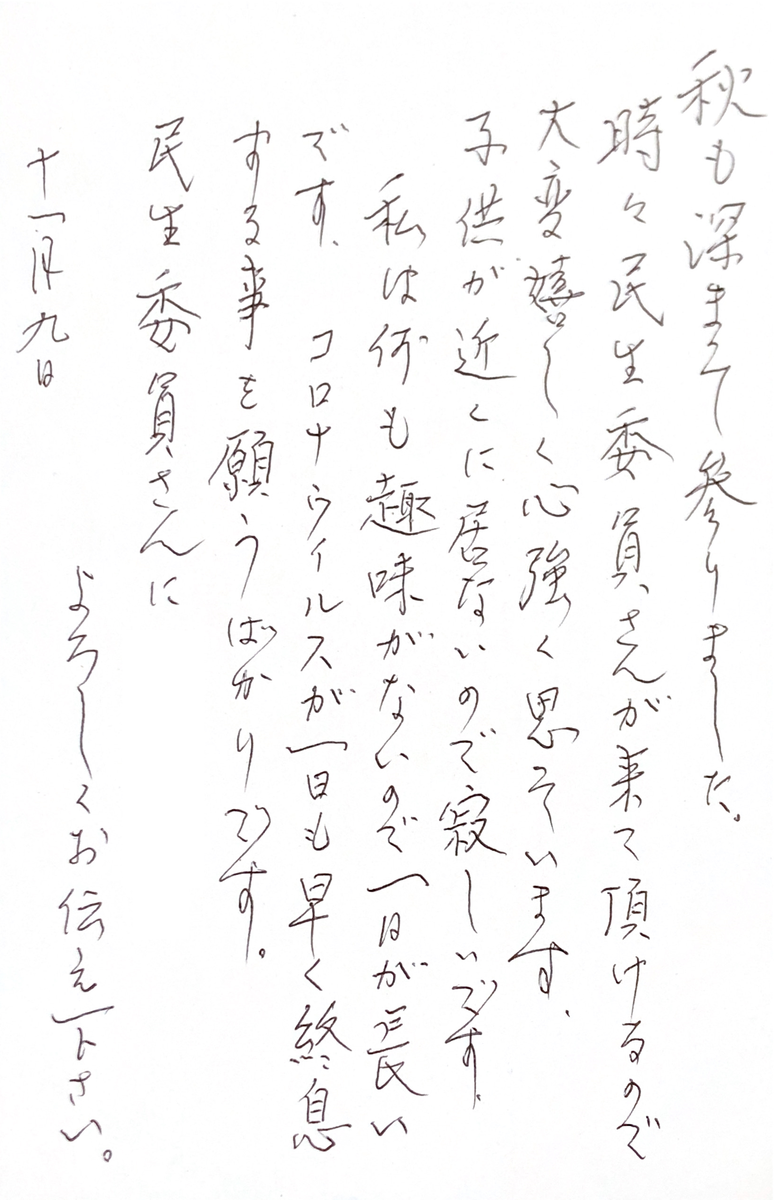 秋も深まって参りました。
時々民生委員さんが来て頂けるので
大変嬉しく心強く思っています、
子供が近くに居ないので寂しいです、
私は何も趣味がないので一日が長い
です、コロナウィルスが一日も早く終息
する事を願うばかりです。
民生委員さんに
よろしくお伝え下さい。
十一月九日